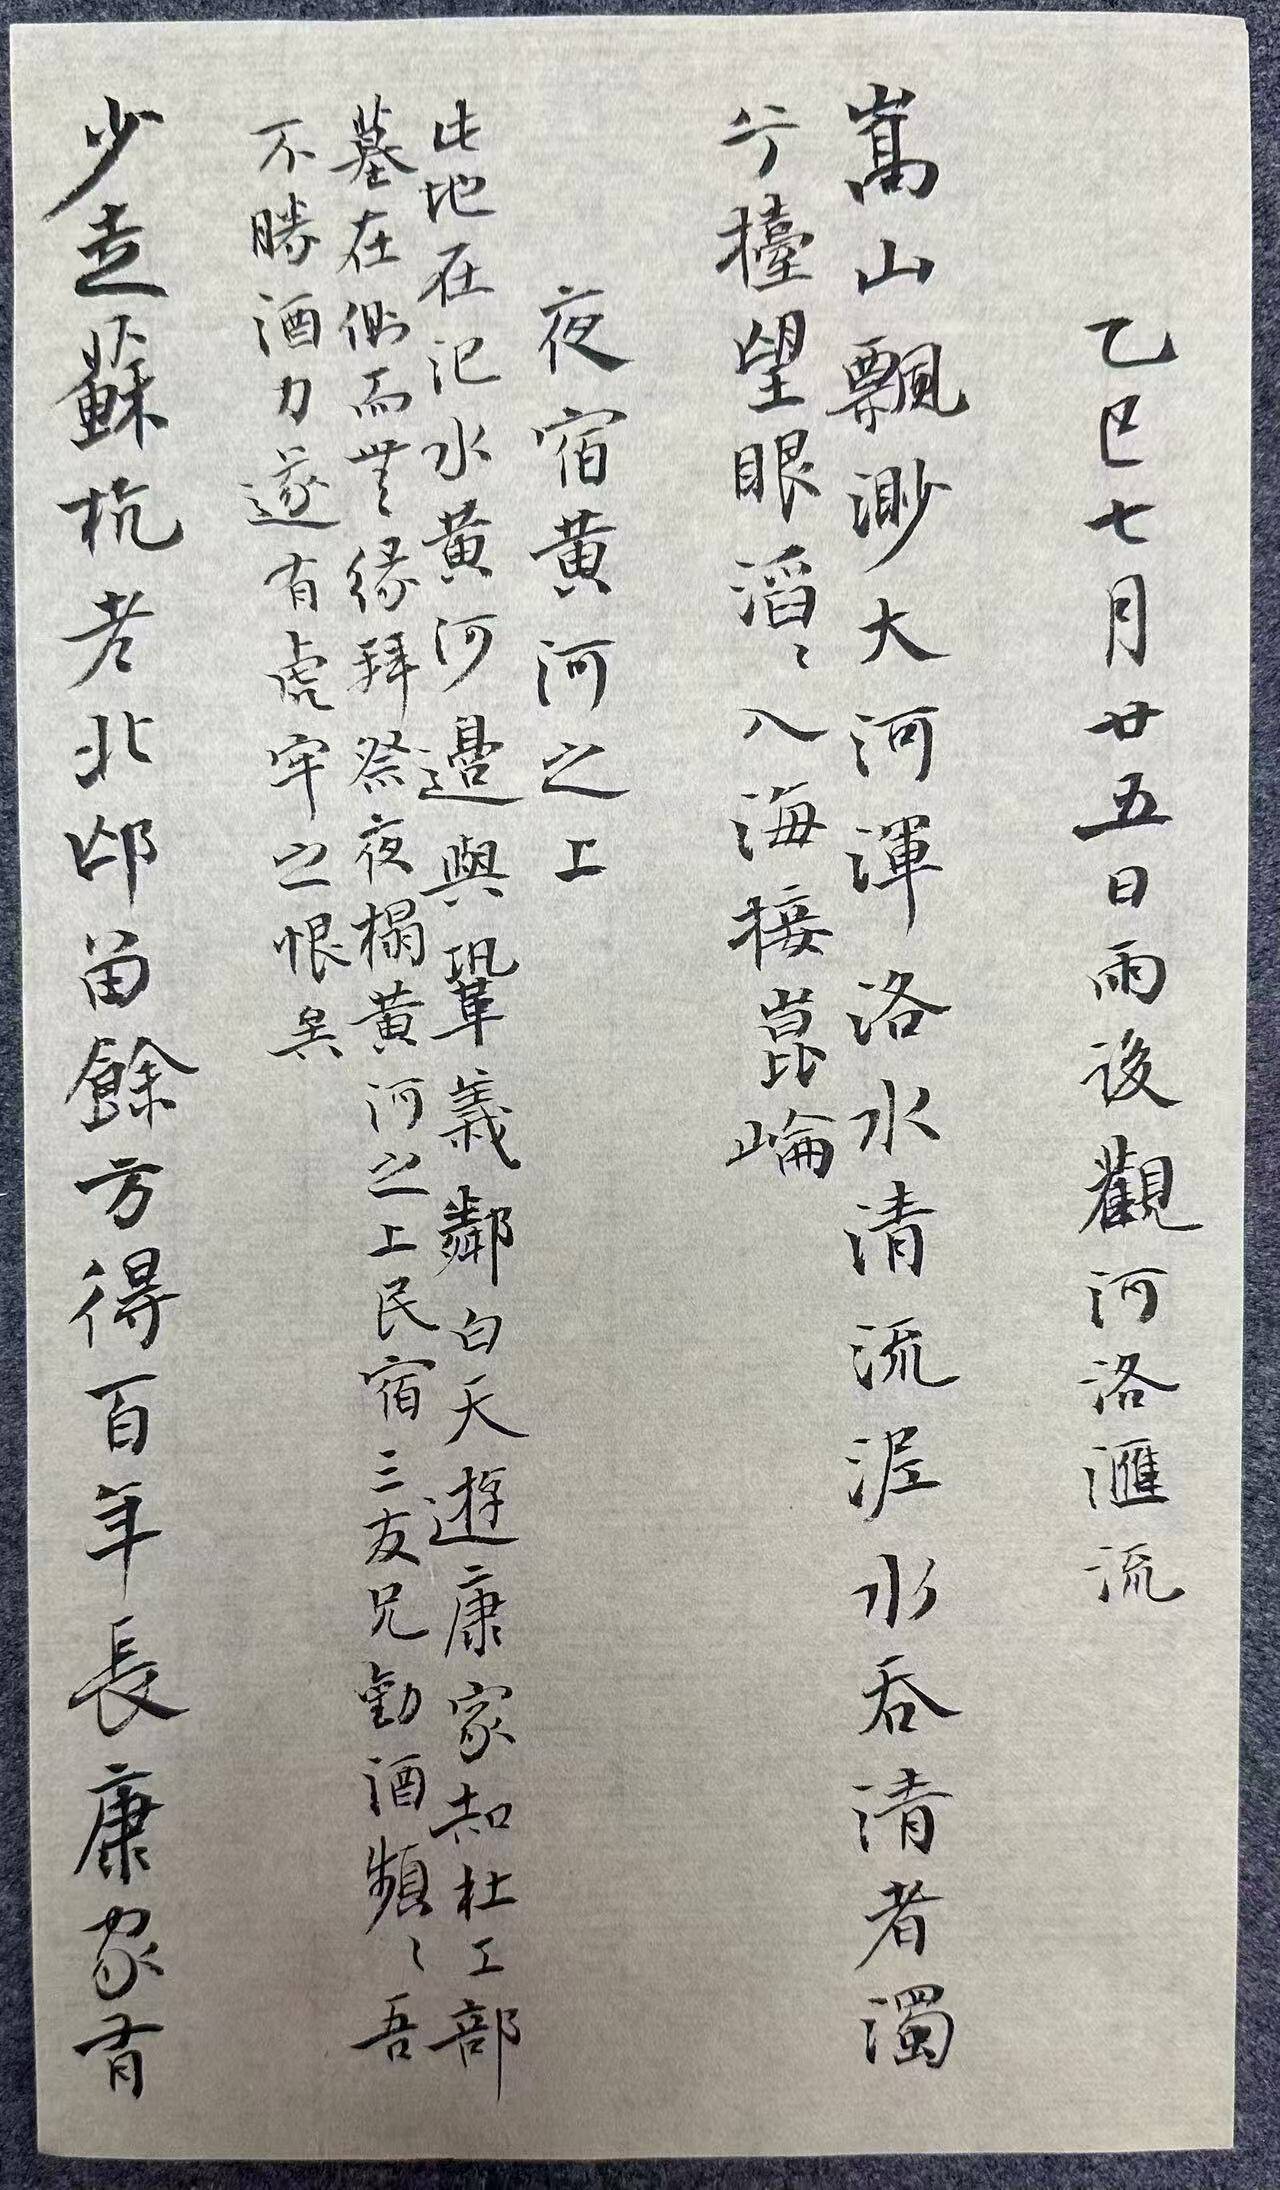 乙巳七月廿五日雨後觀河洛滙流
嵩山飄渺大河渾洛水清流泥水吞清者濁
兮擡望眼滔〻入海接崑崙
夜宿黄河之上
此地在汜水黄河邊與鞏義鄰白天遊康家知杜工部
墓在側而無緣拜祭夜榻黄河之上民宿三友兄勸酒頻〻吾
不勝酒力遂有虎牢之恨矣
少走蘇杭老北邙留餘方得百年長康家有